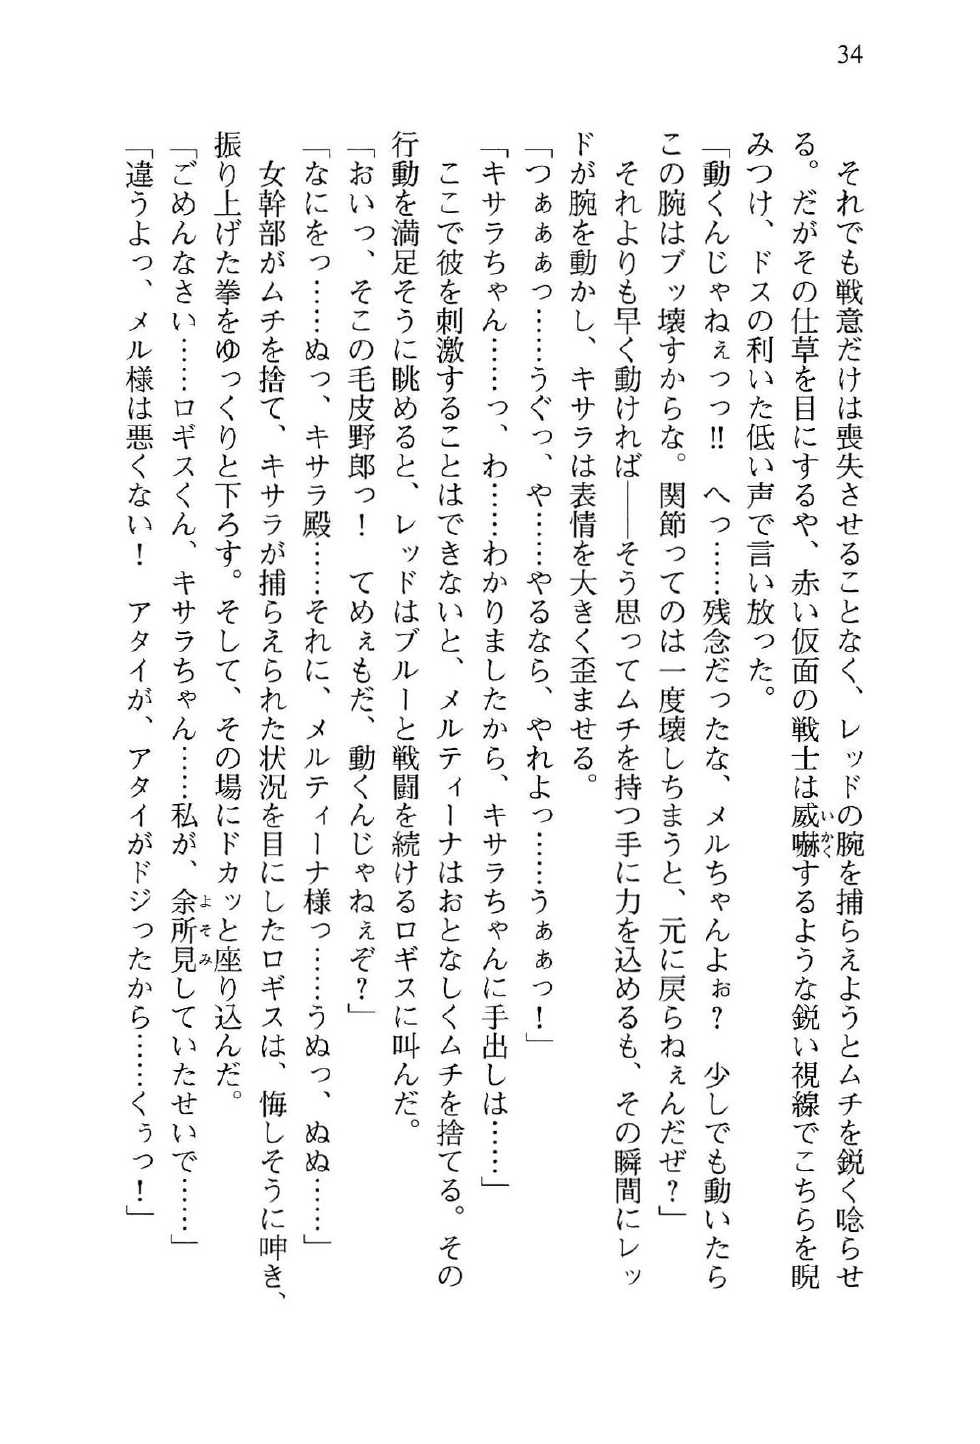 34
　それでも戦意だけは喪失させることなく、レッドの腕を捕らえようとムチを鋭く唸らせ
る。だがその仕草を目にするや、赤い仮面の戦士は威嚇するような鋭い視線でこちらを睨
みつけ、ドスの利いた低い声で言い放った。
「動くんじゃねぇっっ!!　へっ……残念だったな、メルちゃんよぉ？　少しでも動いたら
この腕はブッ壊すからな。関節ってのは一度壊しちまうと、元に戻らねぇんだぜ？」
　それよりも早く動ければ――そう思ってムチを持つ手に力を込めるも、その瞬間にレッ
ドが腕を動かし、キサラは表情を大きく歪ませる。
「つぁぁぁっ……うぐっ、や……やるなら、やれよっ……うぁぁっ！」
「キサラちゃん……っ、わ……わかりましたから、キサラちゃんに手出しは……」
　ここで彼を刺激することはできないと、メルティーナはおとなしくムチを捨てる。その
行動を満足そうに眺めると、レッドはブルーと戦闘を続けるロギスに叫んだ。
「おいっ、そこの毛皮野郎っ！　てめぇもだ、動くんじゃねぇぞ？」
「なにをっ……ぬっ、キサラ殿……それに、メルティーナ様っ……うぬっ、ぬぬ……」
　女幹部がムチを捨て、キサラが捕らえられた状況を目にしたロギスは、悔しそうに呻き、
振り上げた拳をゆっくりと下ろす。そして、その場にドカッと座り込んだ。
「ごめんなさい……ロギスくん、キサラちゃん……私が、余所見していたせいで……」
「違うよっ、メル様は悪くない！　アタイが、アタイがドジったから……くぅっ！」
いかく
よそみ